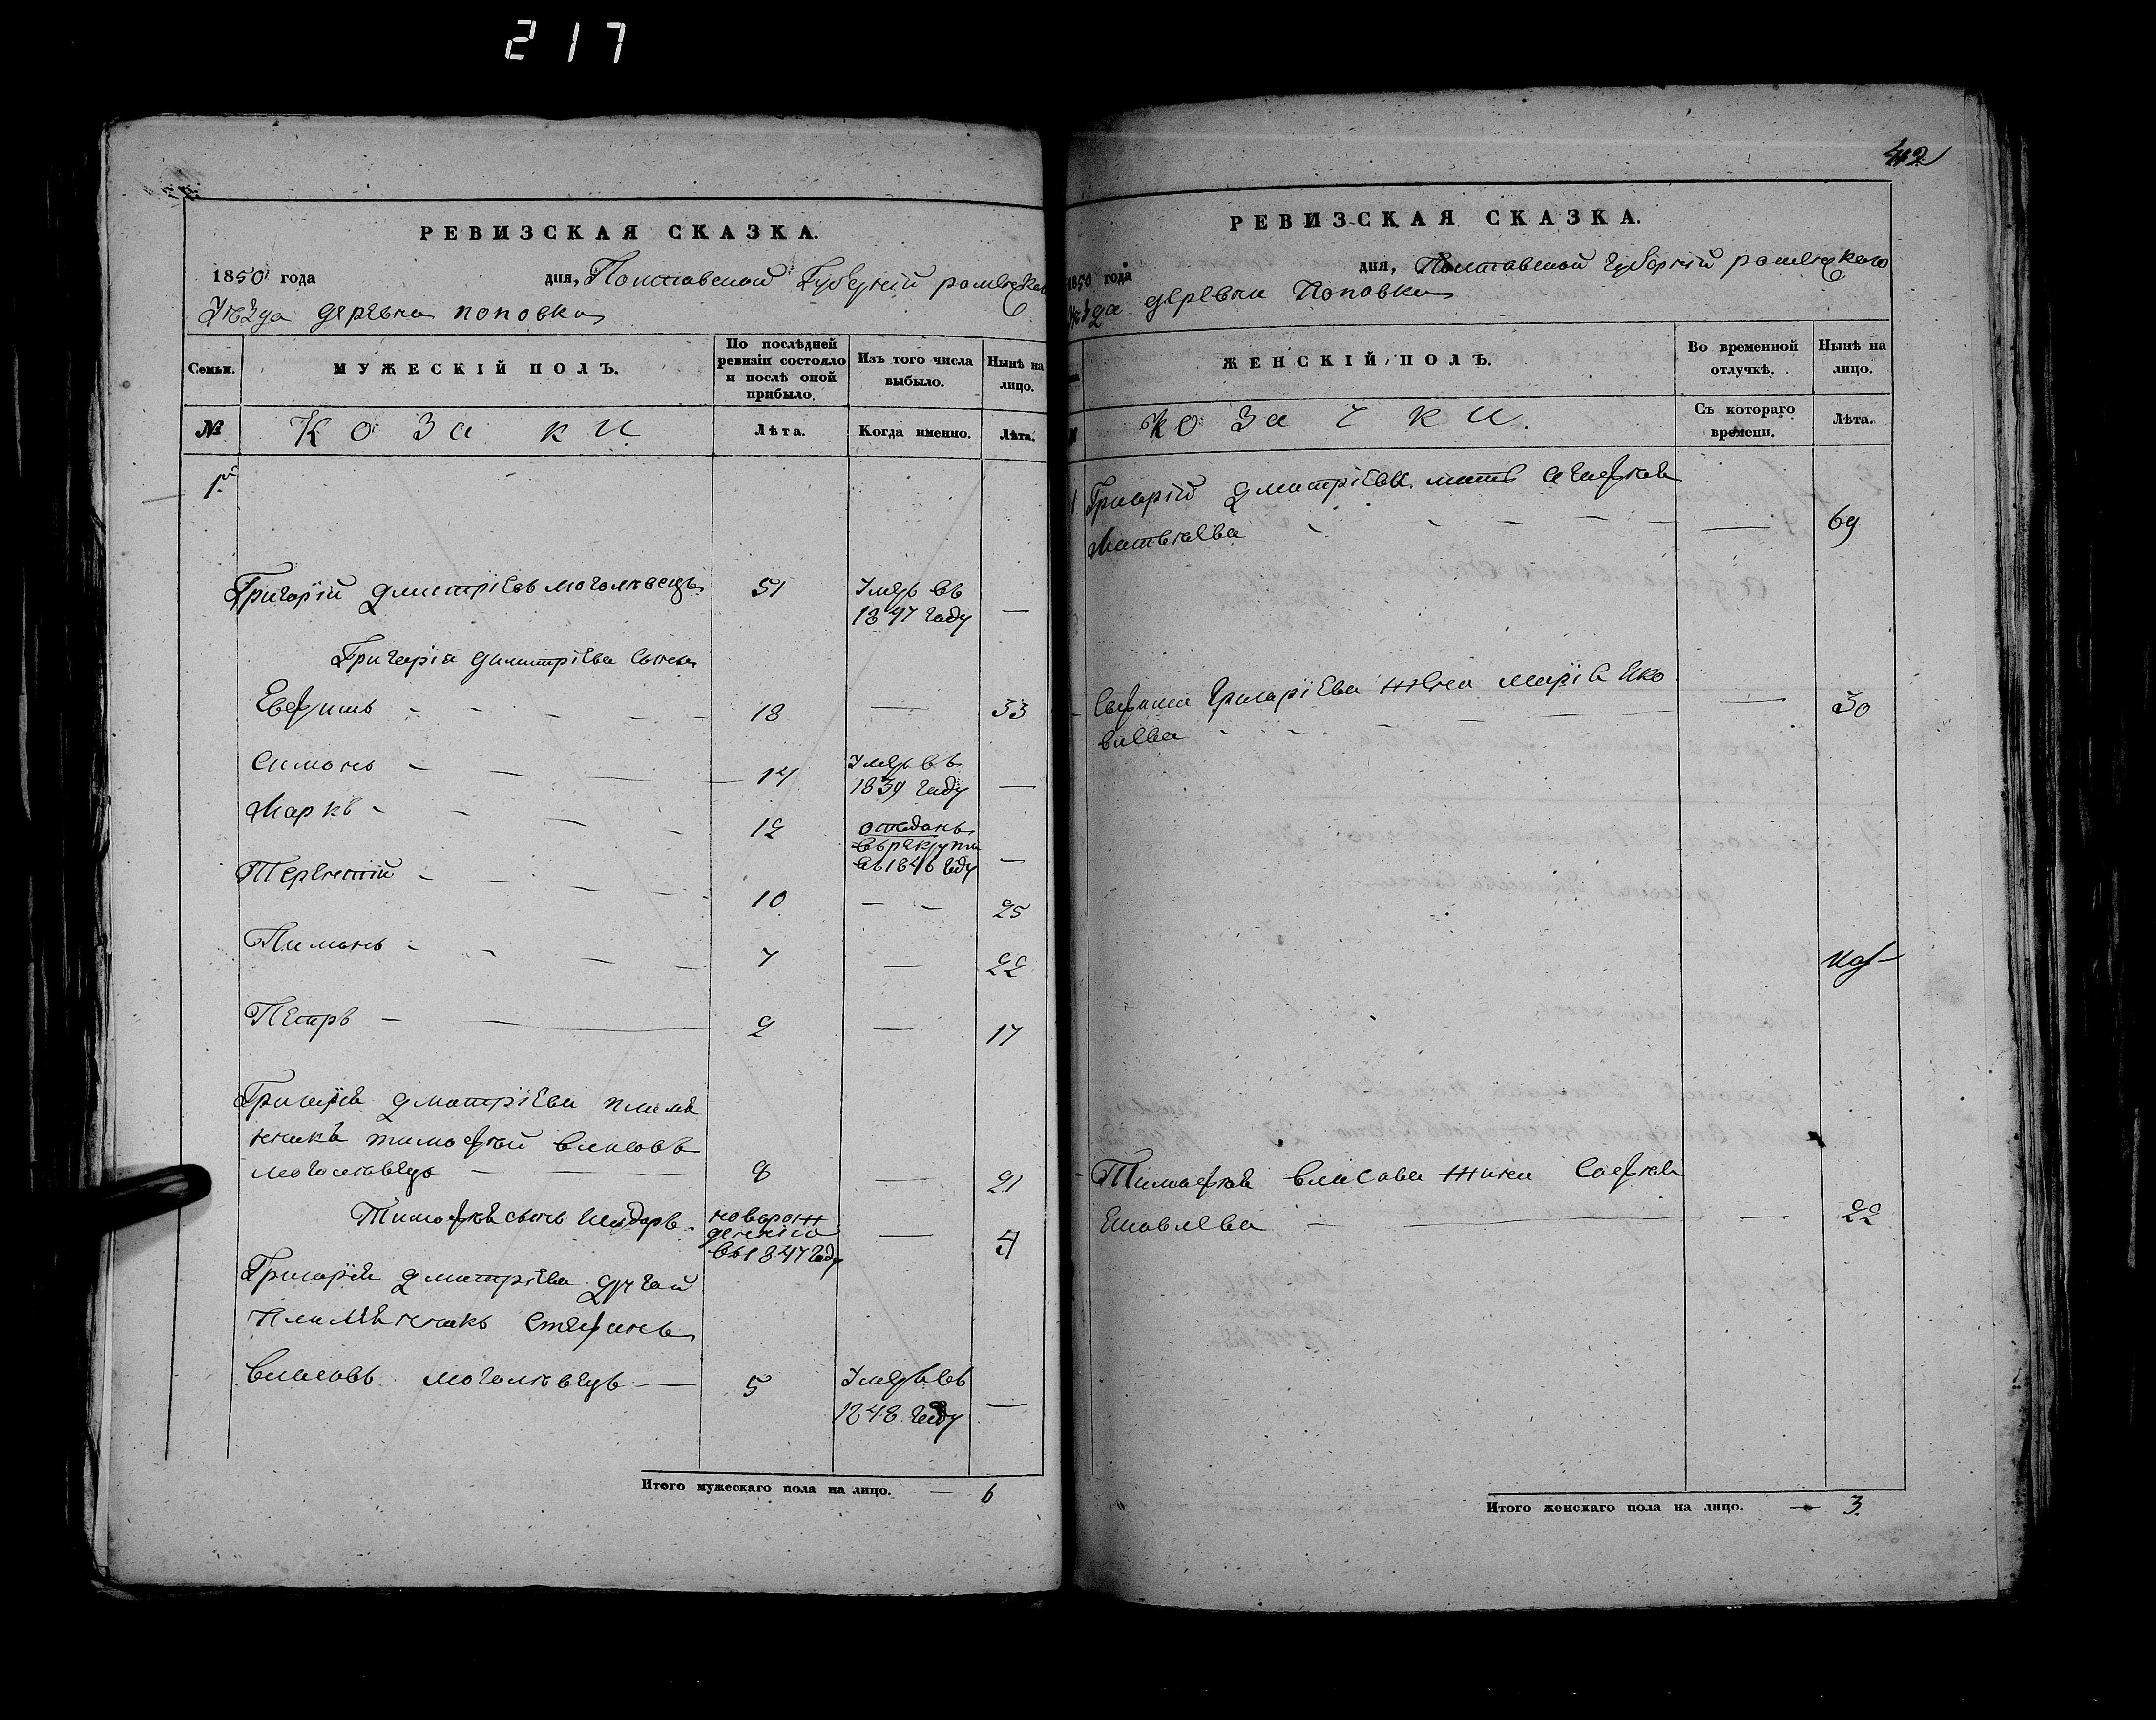 217
РЕВИЗСКАЯ СКАЗКА.
1850 года дня, Полтавской Губерній роменскаго
Уѣзда деревни поповки
Семьи. МУЖЕСКІЙ ПОЛЪ. По послѣдней ревизіи состояло и послѣ оной прибыло. Изъ того числа выбыло. Нынѣ на лицо.
№ Козаки Лѣта. Когда именно. Лѣта.
1.
Григорій дмитріевъ моголивецъ 51 Умеръ въ
1847 году —
Григорія димитріева сыны
Евфимъ 18 — 33
Симонъ 14 Умеръ въ
1839 году —
Маркъ 12 отданъ
въ рекруты
въ 1846 году —
Терентій 10 — — 25
Пимонъ 7 — 22
Петръ 2 — 17
Григорія дмитріева племя
никъ тимофей власовъ
моголивецъ 8 — 21
Тимофея сынъ новорож
деный
въ 1847 году — 4
Григорія дмитріева другой
племянникъ Стефанъ
Власовъ моголивецъ — 5 Умеръ въ
1848 году —
Итого мужескаго пола на лицо. — 6
412
РЕВИЗСКАЯ СКАЗКА.
1850 года дня, Полтавской губерній роменскаго
Уѣзда деревни Поповки
ЖЕНСКІЙ ПОЛЪ. Во временной отлучкѣ. Нынѣ на лицо.
Козачки. Съ котораго времени. Лѣта.
1 Григорія дмитріева мать агафія
Матвѣева — 69
Евфима григоріева жена марія Яко
влева — 30
Тимофея власова жена Софія
Яковлева — 22
Итого женскаго пола на лицо. — 3.